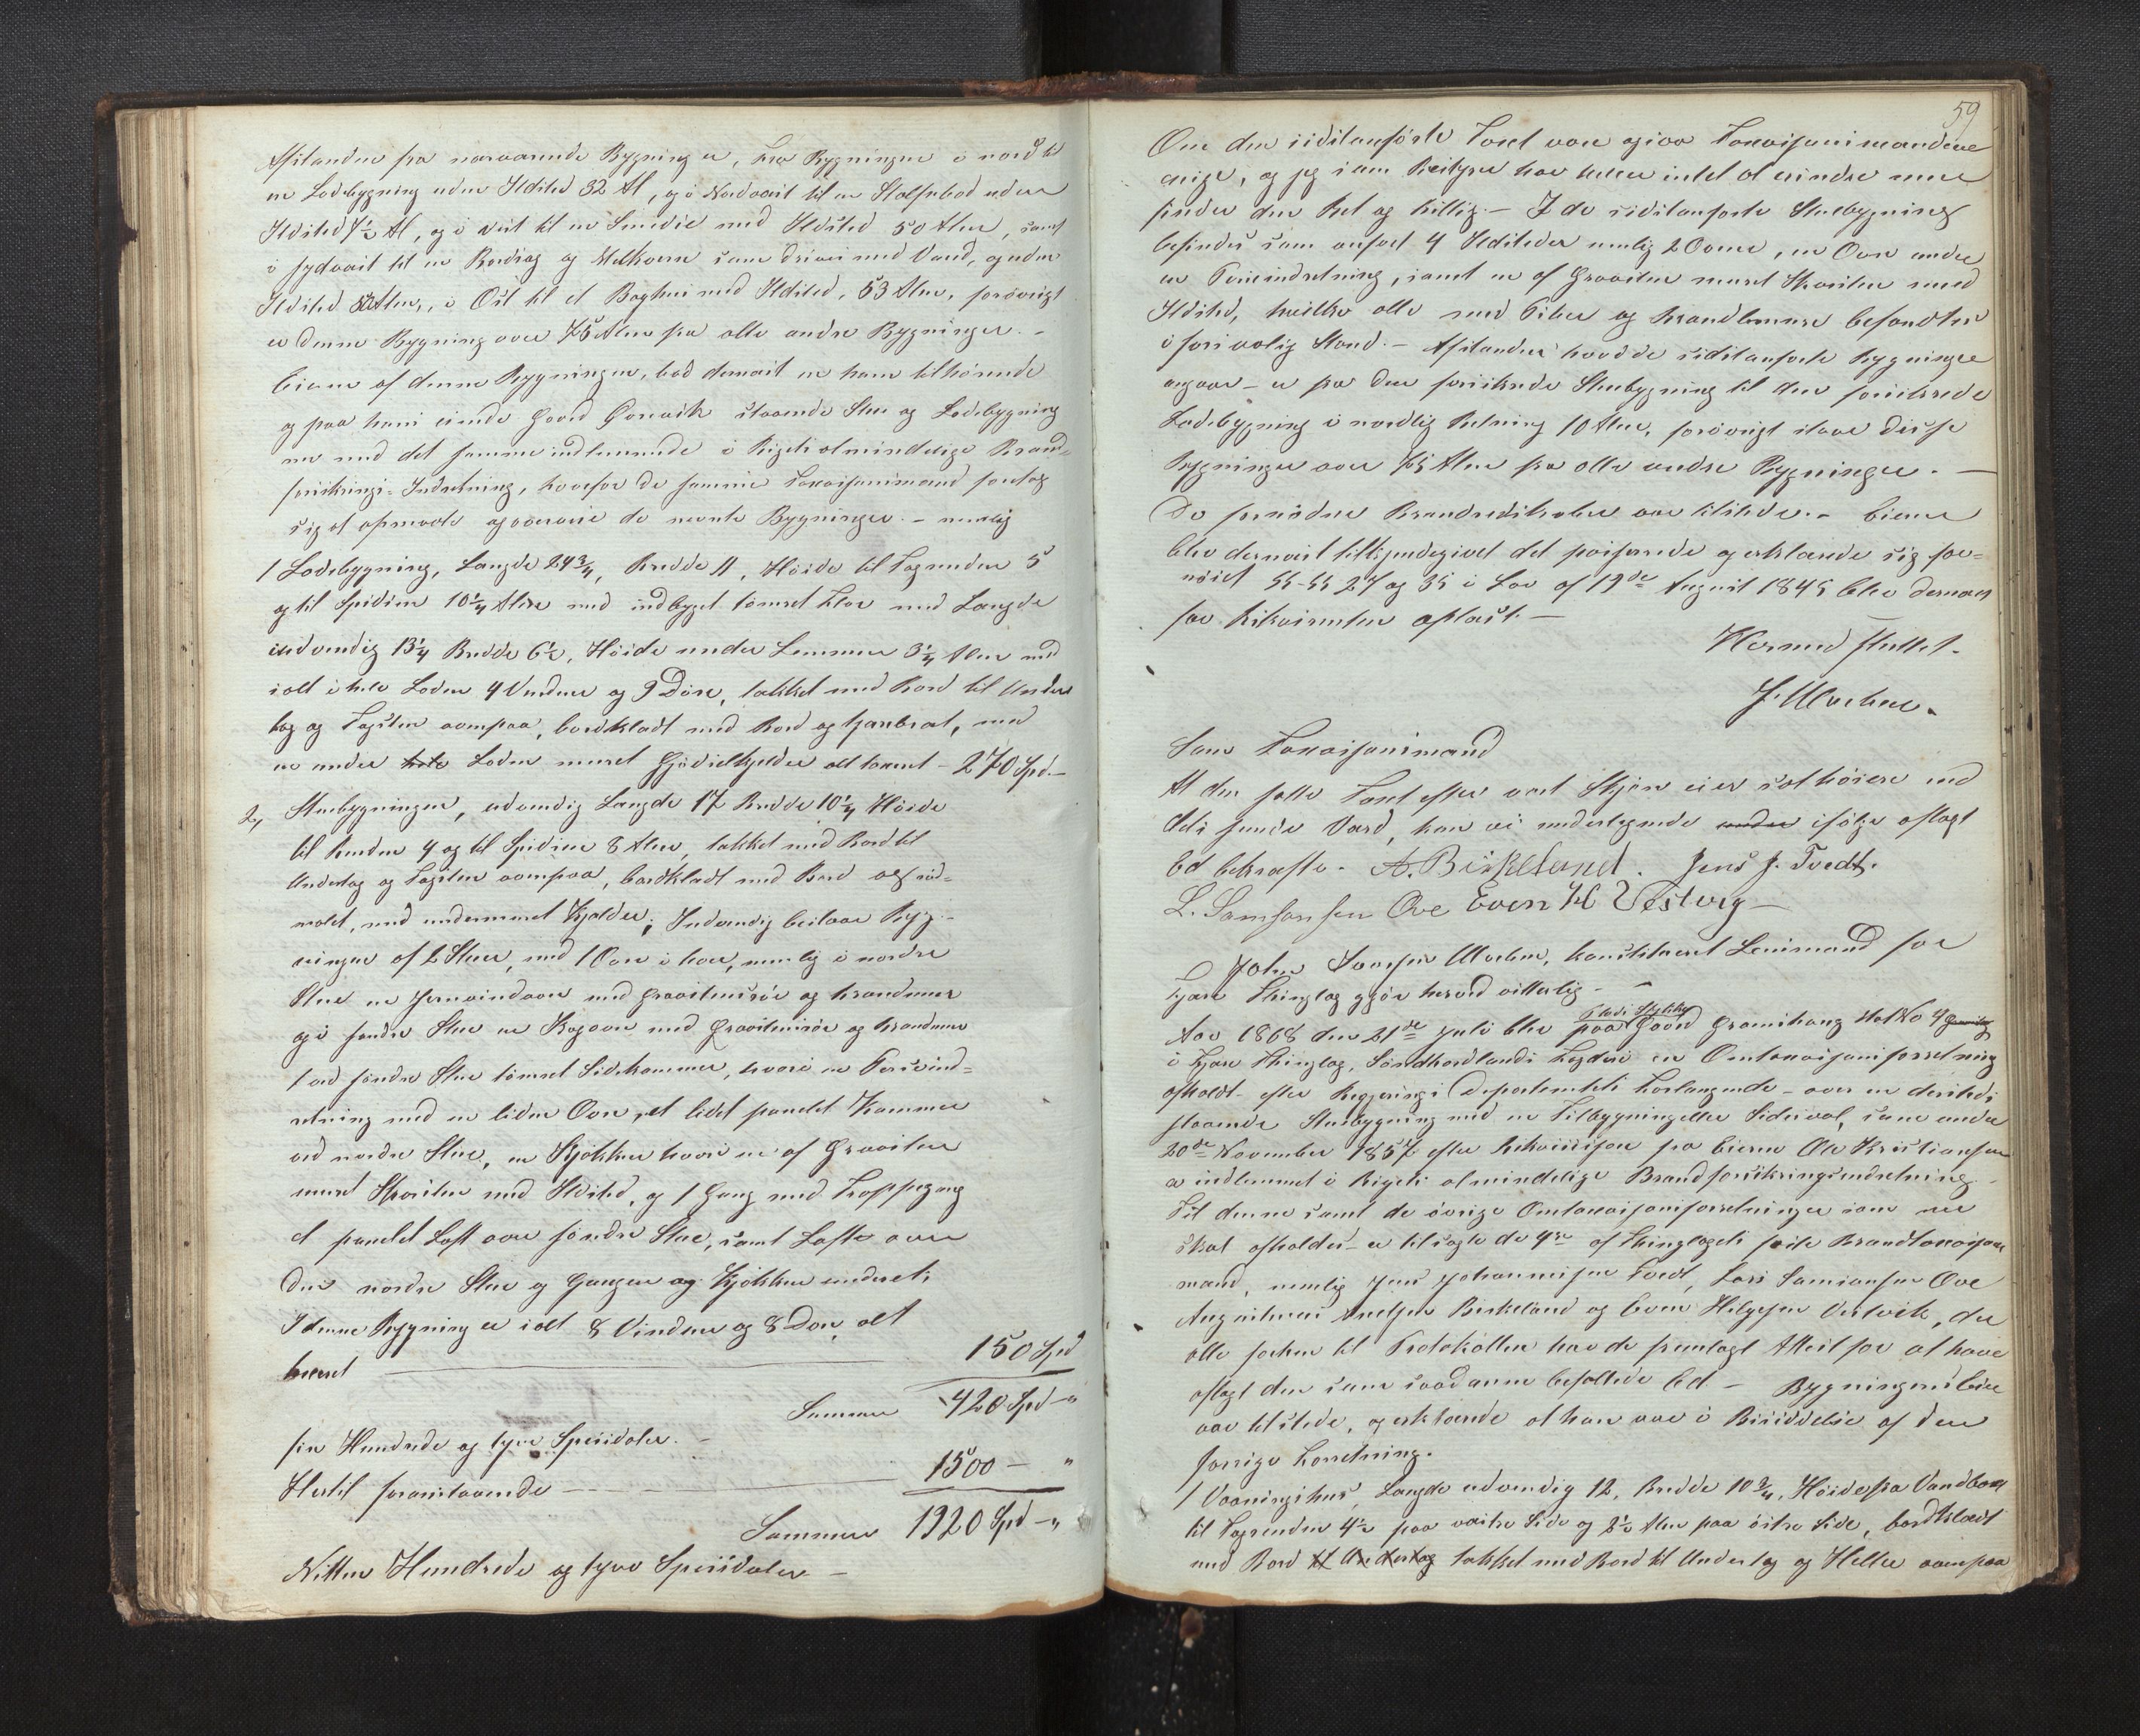 Afstanden fra nærværende Bygning er, fra Bygningen i nord til
en Ladebygning uden Ildsted 32 Al, og i Nordvest til en Stolpebod uden
Ildsted 7½ Al, og i Vest til en Smedie med Ildsted 50 Alen, samt
i sydvest til en Bordsag og Melkværn som drives med Vand, og uden
Ildsted 52 Alen, i Øst til et Baghus med Ildsted, 53 Alen, forøvrigt
er denne Bygning over 75 Alen fra alle andre Bygninger. -
Eieren af denne Bygningen, bad dernæst en ham tilhørende
og paa hans eiende Gaard staaende Stue og Ladebygning
nu med det samme indlemmede i Rigets almindelige Brand-
forsikrings-Indretning, hvorfor de samme Taxasjonsmænd foretog
sig at opmaale og overveie de nævnte Bygninger. - nemlig
1 Ladebygning, Længde 24¾, Bredde 11, Høide til Tagrenden 5
og til Spidsen 10¼ Alen med indbygget tømret Flor med Længde
indvendig 13¼ Bredde 6½, Høide under Lemmen 3¼ Alen med
i alt i hele Laden 4 Vinduer og 9 Døre, takket med Bord til Under
lag og Tagsten ovenpaa, bordklædt med Bord og tjærbræt, med
en under hele Laden muret Gjødselkjelder alt taxeret - 270 Spd. -
2, Stuebygningen, udvendig Længde 17 Bredde 10¼ Høide
til Renden 4 og til Spidsen 8 Alen, takket med Bord til
Underlag og Tagsten ovenpaa, bordklædt med Bord og rød-
malet, med undermuret Kjelder; Indvendig bestaar Byg-
ningen af 2 Stuer, med 1 Ovn i hver, nemlig i nordre
Stue en Jernvindovn med Graastensrør og brandmur
og i søndre Stue en Kogeovn med Graastensrør og brandmur
1 ved søndre Stue tømret Sidekammer, hvori en Farveind-
retning med en liden Ovn, et lidet panelet Kammer
ved nordre Stue, en Kjøkken hvori en af Graasten
muret Skorsten med Ildsted, og 1 Gang med Trappegang
et panelet Loft over søndre Stue, samt Lofte over
den nordre Stue og Gangen og Kjøkken inderst.
I denne Bygning er i alt 8 Vinduer og 8 Døre, alt
taxeret 150 Spd
Summa 420 Spd - "
fire Hundrede og tyve Spesidaler. -
Hertil foranstaaende 1500 - "
Summa 1920 Spd - "
Nitten Hundrede og tyve Spesidaler -
59
Om den sidstanførte Taxt var ogsaa Taxasjonsmændene
enige, og jeg som Bestyrer har heller intet at erindre men
finder den Ret og billig. - I de sidstanførte Stuebygning
befindes som anført 4 Ildsteder nemlig 2 Ovne, en Ovn under
en Farveindretning, samt en af Graasten muret Skorsten med
Ildsted, hvilke alle med Piber og Brandmure befandtes
i forsvarlig Stand. - Afstanden hvad de sidstanførte Bygninger
angaar - er fra den forsikrede Stuebygning til den forsikrede
Ladebygning i nordlig Retning 10 Alen, forøvrigt staar disse
Bygninger over 75 Alen fra alle andre Bygninger. -
De fornødne Brandredskaber var tilstede. - Eieren
blev dernæst tilkjendegivet det passerede og erklærede sig for-
nøiet §§-§§ 27 og 35 i Lov af 19de August 1845 blev dernæst
for Rekvirenten oplæst. -
Hermed sluttet.
J. Ulvehen.
Som Taxasjonsmænd
At den satte Taxt efter vort Skjøn ei er sat høiere end
dets sande Værd, kan vi undertegnede under ifølge aflagt
Ed bekræfte. A. Birkeland. Jens J. Tvedt.
L. Samsonsen Ove Even H Vestvig -
John Larsen Ulvehen, konstitueret Lensmand for
Fjære Thinglag gjør herved vitterlig -
Aar 1868 den 21de Juli blev paa Gaard Gramshaug Mat No 4
i Fjære Thinglag, Søndhordlands Fogderi en Omtaxasjonsforretning
afholdt efter Regjerings Departementets Forlangende - over en dersteds
staaende Stuebygning med en Tilbygning eller Sideval, som under
20de November 1857 efter Rekvisisjon fra Eieren Ole Kristiansen
er indlemmet i Rigets almindelige Brandforsikringsindretning.
Til denne samt de øvrige Omtaxasjonsforretninger som nu
skal afholdes - er tilsagte de 4re af Thinglagets faste Brandtaxasjons
mænd, nemlig Jens Johannessen Tvedt, Lars Samsonsen Ove
Birkeland og Even Helgesen Vestvik, der
alle forhen til Protokollen har fremlagt Attest for at have
aflagt den som saadanne befalede Ed - Bygningens Eier
var tilstede, og erklærede at han var i Besiddelse af den
forrige Forretning.
1 Vaaningshus, Længde udvendig 12, Bredde 10¾, Høide fra Vandbord
til Tagrenden 4½ paa vestre Side og 2½ Alen paa østre Side, bordklædt
med Bord til Underlag takket med Bord til Underlag og Heller ovenpaa